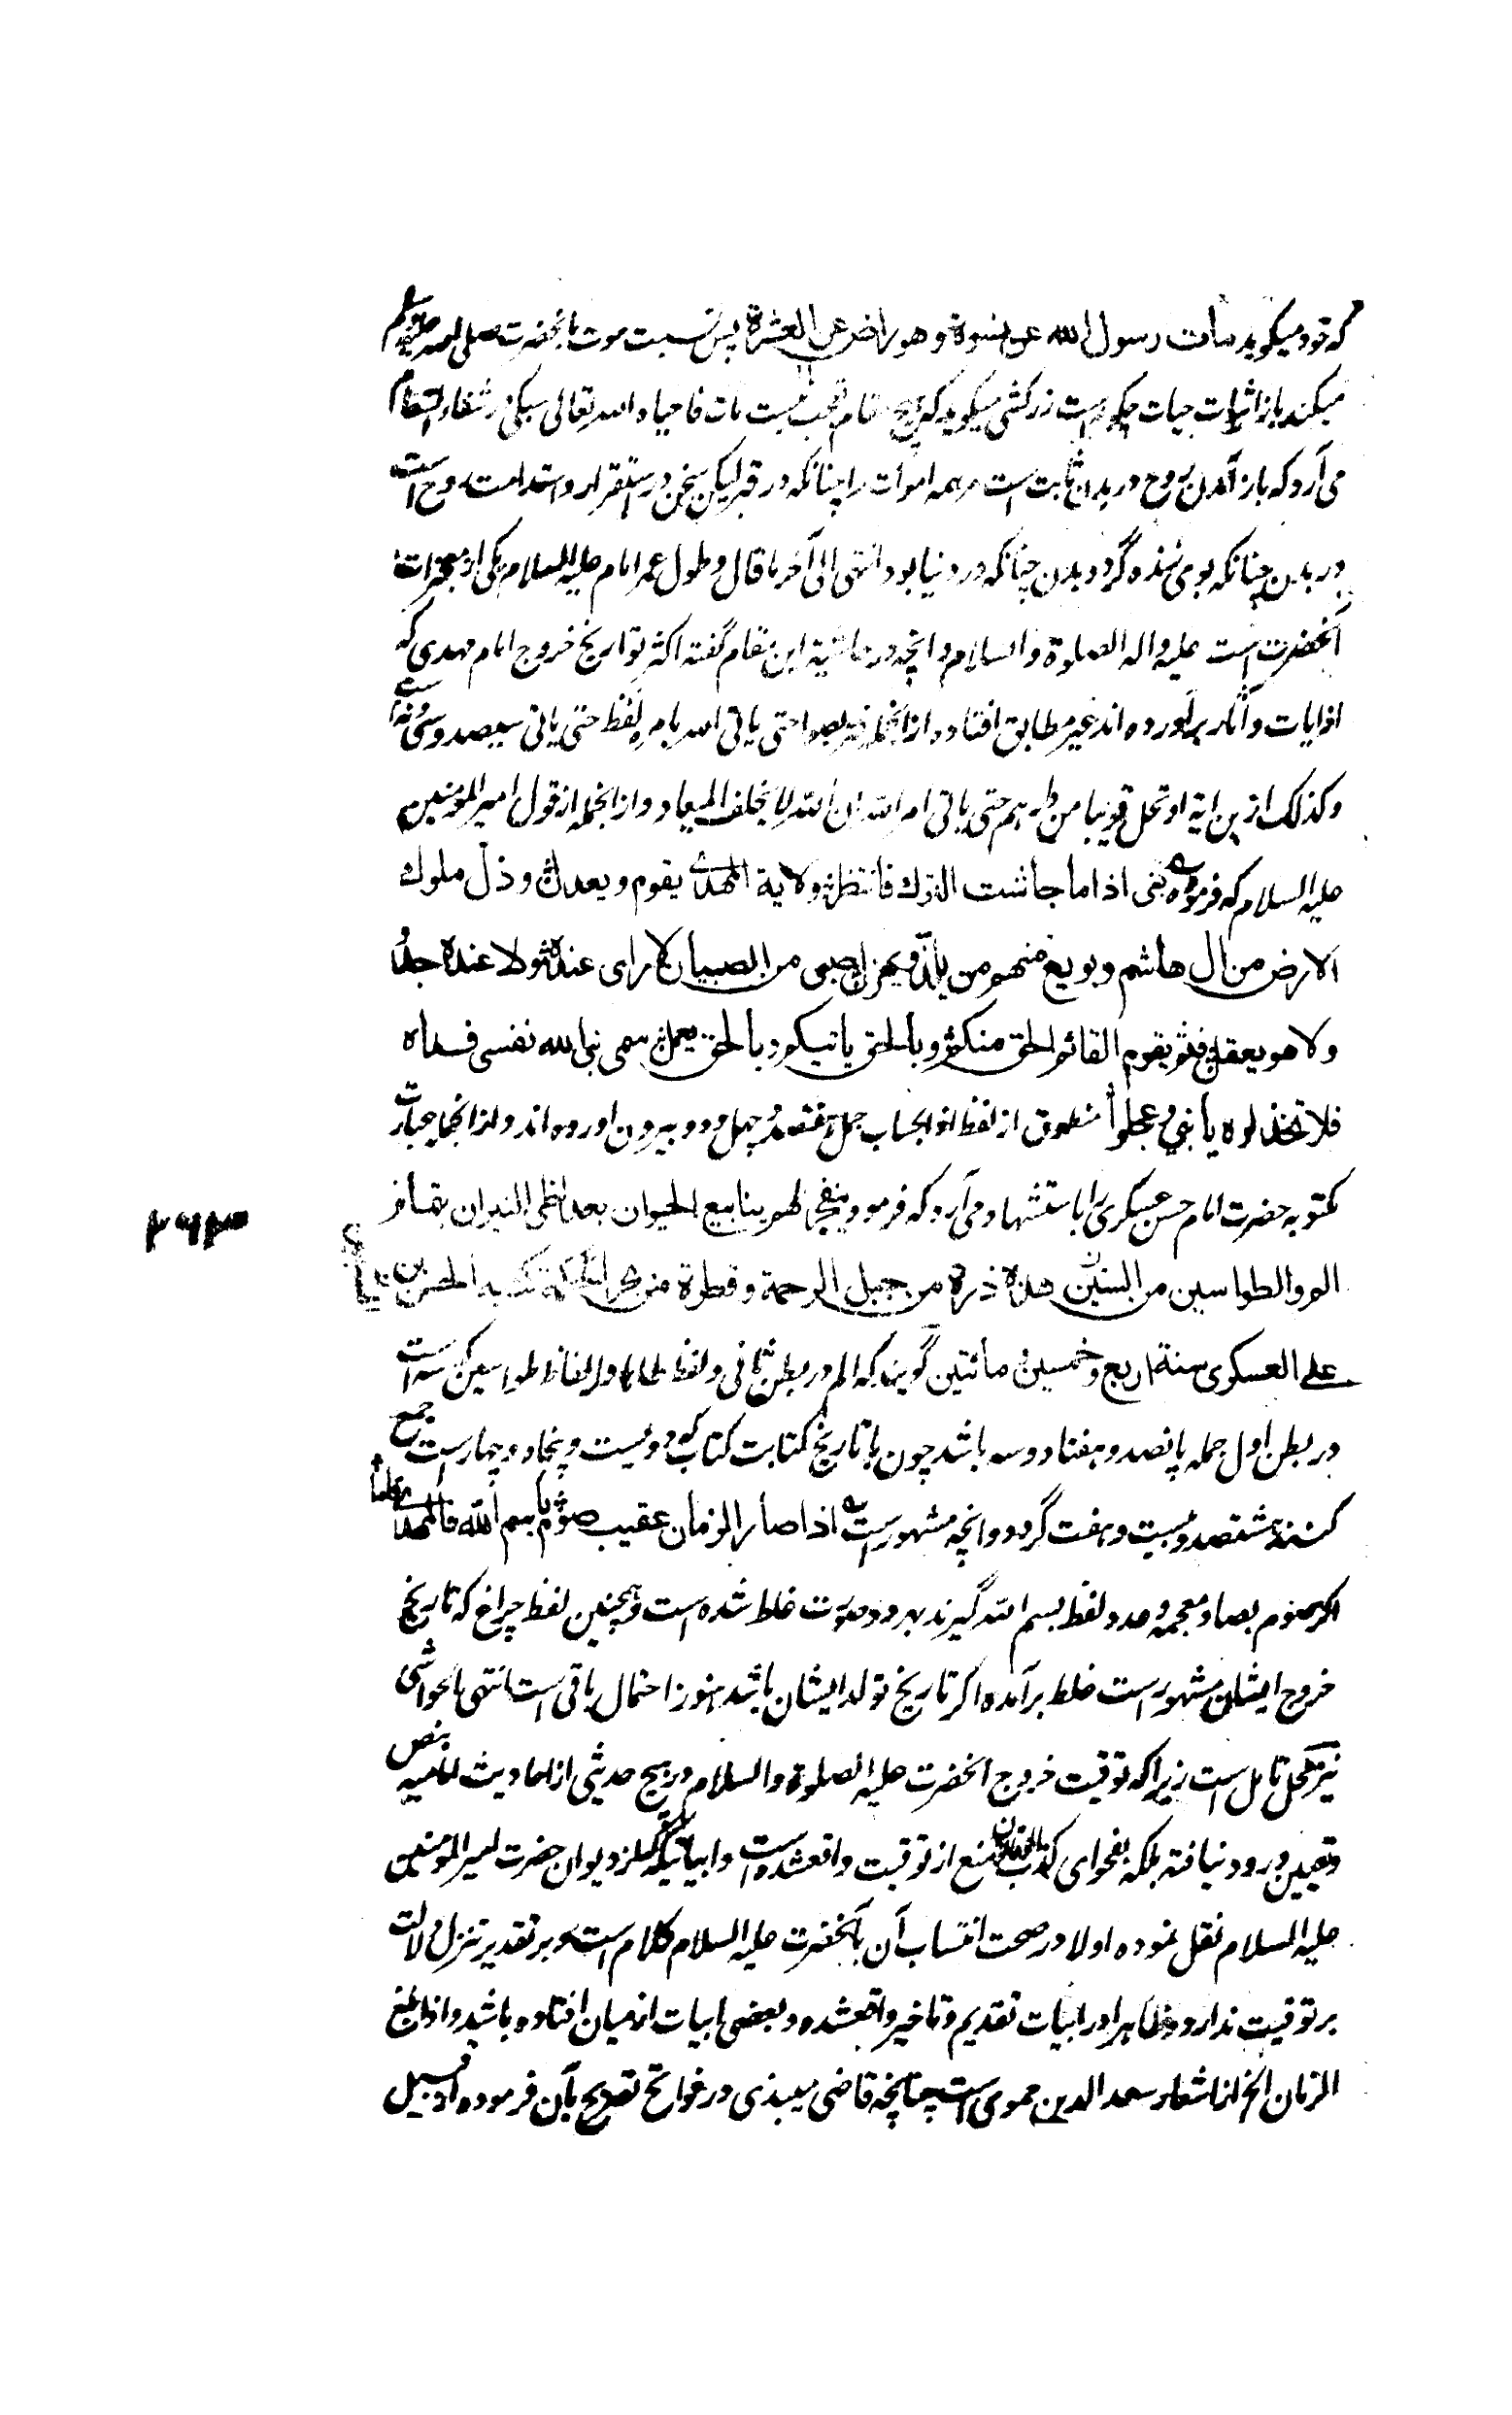 که خود میگوید مات رسول الله عن نسوة وهو راض عن العشرة پس نسبت موت بانحضرت صلی الله علیه وسلم
میکند باز اثبات حیات چگونه است زرکشی میگوید که هیچ مقام تعجب نیست مات فاحیاه الله تعالی سبکی در شفاء السقام
می آرد که باز آمدن روح در بدن ثابت است مر همه اموات را چنانکه در قبر لیکن سخن در استقرار و استدامت روح است
در بدن چنانکه بوی زنده گردد بدن چنانکه در دنیا بود انتهی الی آخر ما قال وطول عمر امام علیه السلام یکی از معجزات
آنحضرت است علیه واله الصلوة والسلام وانچه در حاشیة این مقام گفته اکثر تواریخ خروج امام مهدی که
از ایات و آثار برآورده اند غیر مطابق افتاده از انجمله فتربصوا حتی یاتی الله بامره لفظ حتی یاتی سیصد وسی ونه است
وکذلک ازین ایة او تحل قریبا من دارهم حتی یاتی امر الله ان الله لا یخلف المیعاد و از انجمله از قول امیر المؤمنین
علیه السلام که فرموده بنی اذا ما جاشت الترك فانتظر ولاية المهدی يقوم ويعدل وذل ملوك
الارض من ال هاشم وبويع منهم من يلذ ويهزل صبی من الصبيان لا رای عنده ولا عنده جد
ولا هو يعقل فثم يقوم القائم الحق منكم وبالحق ياتيكم وبالحق يعمل سمی نبی الله نفسی فداه
فلا تخذلوه يا بنی وعجلوا منطوق از لفظ اذا بحساب جمل هفتصد و چهل و دو بیرون اورده اند و از انجا عبارت
مکتوبه حضرت امام حسن عسکری را باستشهاد می آرد که فرمود وينفجر لهم ينابيع الحيوان بعد لظی النيران بتمام
الم والطواسين من السنين هذه ذرة من جبل الرحمة وقطرة من بحر الحكمة كتبه الحسن بن
علی العسكری سنة اربع وخمسين ومائتين گویند که الم در بطن ثانی ولفظ طه والفاظ طواسین که سه است
در بطن اول جمله پانصد و هفتاد و سه باشد چون با تاریخ کتابت کتاب که دویست و پنجاه و چهار است جمع
کنند هشتصد و بیست و هفت گردد وانچه مشهور است اذا صار الزمان عقيب صوم بسم الله فالمهدی قاما
اگر صوم بصاد معجمه و عدد لفظ بسم الله گیرند بهر دو صورت غلط شده است وهمچنین لفظ چراغ که تاریخ
خروج ایشان مشهور است غلط برآمده اگر تاریخ تولد ایشان باشد هنوز احتمال باقی است انتهی بالحواشی
نیز محل تامل است زیرا که توقیت خروج انحضرت علیه الصلوة والسلام در هیچ حدیثی از احادیث امامیه بنص
وتعیین ورود نیافته بلکه بفحوای کذب الوقاتون منع از توقیت واقعشده است وابیاتیکه از دیوان حضرت امیر المؤمنین
علیه السلام نقل نموده اولا در صحت انتساب آن بآنحضرت علیه السلام کلام است و بر تقدیر تنزل دلالت
بر توقیت ندارد وظاهرا در ابیات تقدیم وتاخیر واقعشده وبعضی ابیات از میان افتاده باشد و اذا بلغ
الزمان الخ از اشعار سعد الدین حموی است چنانچه قاضی میبذی در فواتح تصریح بآن فرموده از قبیل
۲۶۳